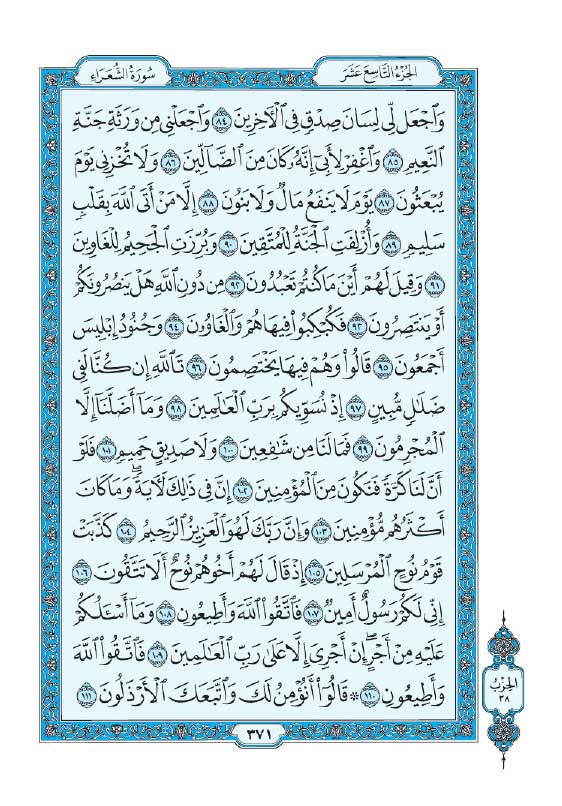 الجزء التاسع عشر
سورة الشعراء
وَٱجْعَل لِّي لِسَانَ صِدْقٍ فِي ٱلْأٓخِرِينَ ٨٤ وَٱجْعَلْنِي مِن وَرَثَةِ جَنَّةِ
ٱلنَّعِيمِ ٨٥ وَٱغْفِرْ لِأَبِيٓ إِنَّهُۥ كَانَ مِنَ ٱلضَّآلِّينَ ٨٦ وَلَا تُخْزِنِي يَوْمَ
يُبْعَثُونَ ٨٧ يَوْمَ لَا يَنفَعُ مَالٌ وَلَا بَنُونَ ٨٨ إِلَّا مَنْ أَتَى ٱللَّهَ بِقَلْبٍ
سَلِيمٍ ٨٩ وَأُزْلِفَتِ ٱلْجَنَّةُ لِلْمُتَّقِينَ ٩٠ وَبُرِّزَتِ ٱلْجَحِيمُ لِلْغَاوِينَ
٩١ وَقِيلَ لَهُمْ أَيْنَ مَا كُنتُمْ تَعْبُدُونَ ٩٢ مِن دُونِ ٱللَّهِ هَلْ يَنصُرُونَكُمْ
أَوْ يَنتَصِرُونَ ٩٣ فَكُبْكِبُواْ فِيهَا هُمْ وَٱلْغَاوُۥنَ ٩٤ وَجُنُودُ إِبْلِيسَ
أَجْمَعُونَ ٩٥ قَالُواْ وَهُمْ فِيهَا يَخْتَصِمُونَ ٩٦ تَٱللَّهِ إِن كُنَّا لَفِي
ضَلَٰلٍ مُّبِينٍ ٩٧ إِذْ نُسَوِّيكُم بِرَبِّ ٱلْعَٰلَمِينَ ٩٨ وَمَآ أَضَلَّنَآ إِلَّا
ٱلْمُجْرِمُونَ ٩٩ فَمَا لَنَا مِن شَٰفِعِينَ ١٠٠ وَلَا صَدِيقٍ حَمِيمٍ ١٠١ فَلَوْ
أَنَّ لَنَا كَرَّةً فَنَكُونَ مِنَ ٱلْمُؤْمِنِينَ ١٠٢ إِنَّ فِي ذَٰلِكَ لَأٓيَةً ۖ وَمَا كَانَ
أَكْثَرُهُم مُّؤْمِنِينَ ١٠٣ وَإِنَّ رَبَّكَ لَهُوَ ٱلْعَزِيزُ ٱلرَّحِيمُ ١٠٤ كَذَّبَتْ
قَوْمُ نُوحٍ ٱلْمُرْسَلِينَ ١٠٥ إِذْ قَالَ لَهُمْ أَخُوهُمْ نُوحٌ أَلَا تَتَّقُونَ ١٠٦
إِنِّي لَكُمْ رَسُولٌ أَمِينٌ ١٠٧ فَٱتَّقُواْ ٱللَّهَ وَأَطِيعُونِ ١٠٨ وَمَآ أَسْـَٔلُكُمْ
عَلَيْهِ مِنْ أَجْرٍ ۖ إِنْ أَجْرِيَ إِلَّا عَلَىٰ رَبِّ ٱلْعَٰلَمِينَ ١٠٩ فَٱتَّقُواْ ٱللَّهَ
وَأَطِيعُونِ ١١٠ ۞ قَالُوٓاْ أَنُؤْمِنُ لَكَ وَٱتَّبَعَكَ ٱلْأَرْذَلُونَ ١١١
الحزب
٣٨
٣٧١